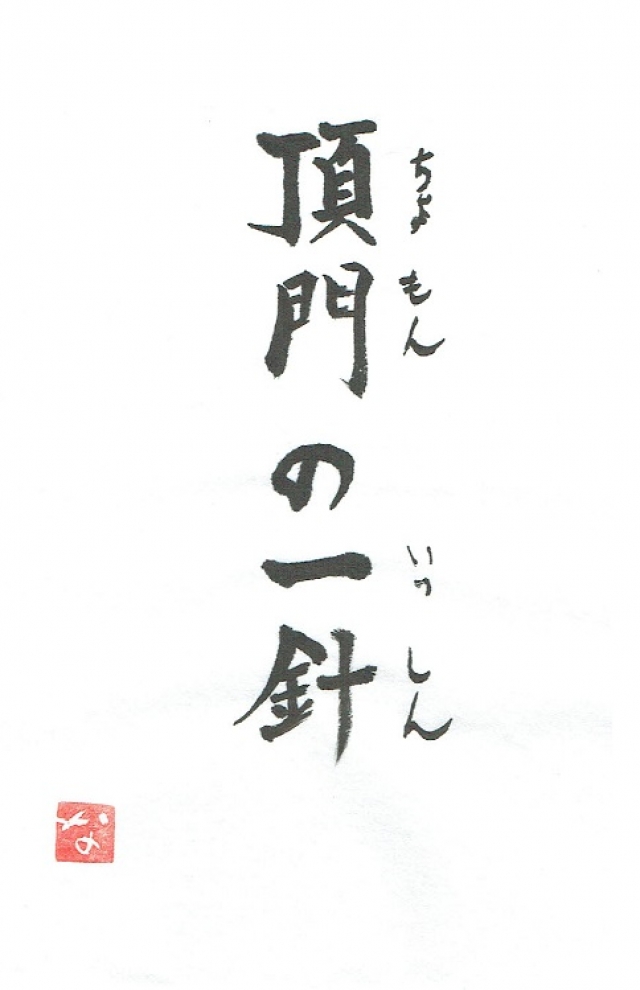 頂門の一針
ちょもん いっしん
な